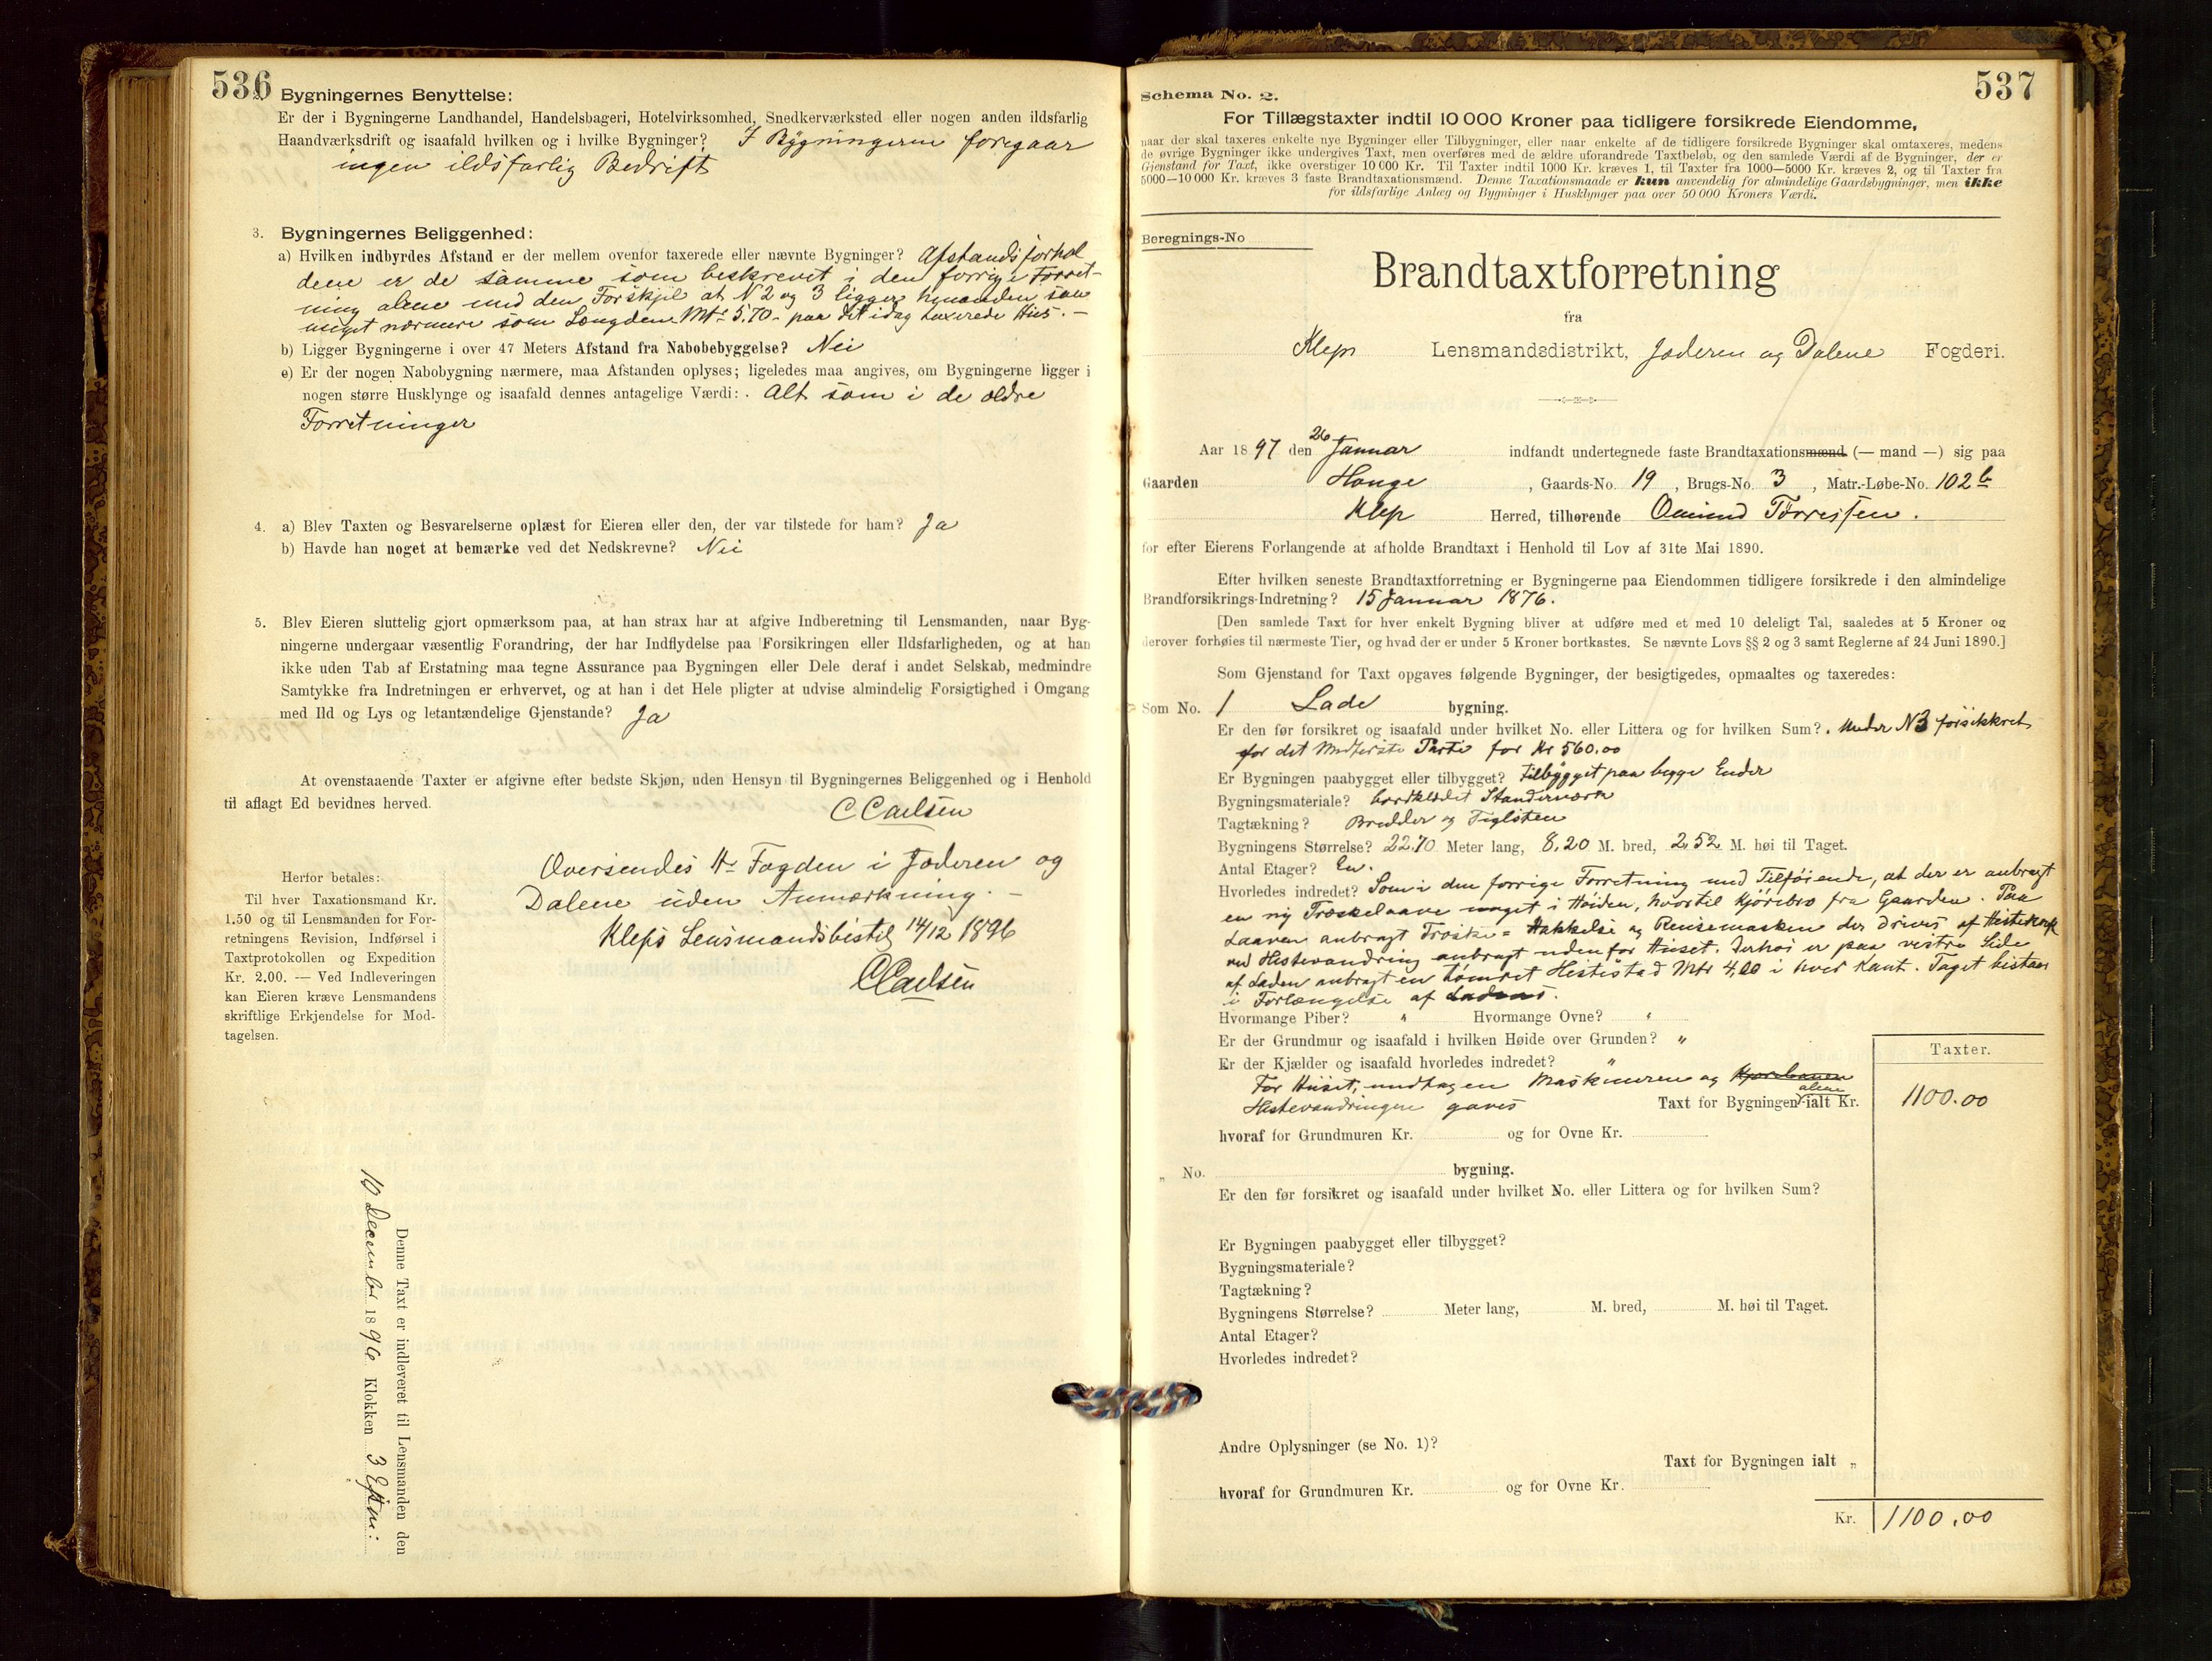 536
Bygningernes Benyttelse:
Er der i Bygningerne Landhandel, Handelsbageri, Hotelvirksomhed, Snedkerværksted eller nogen anden ildsfarlig
Haandværksdrift og isaafald hvilken og i hvilke Bygninger? I Bygningerne foregaar
ingen ildsfarlig Bedrift
3. Bygningernes Beliggenhed:
a) Hvilken indbyrdes Afstand er der mellem ovenfor taxerede eller nævnte Bygninger? Afstandsforhol
dene er de samme som beskrevet i den forrige Forret-
ning alene med den Forskjel at N 2 og 3 ligger hinanden saa
meget nærmere som Længden Mtr 5,70 - paa det idag taxerede Hus. -
b) Ligger Bygningerne i over 47 Meters Afstand fra Nabobebyggelse? Nei
c) Er der nogen Nabobygning nærmere, maa Afstanden oplyses; ligeledes maa angives, om Bygningerne ligger i
nogen større Husklynge og isaafald dennes antagelige Værdi: Alt som i de ældre
Forretninger
4. a) Blev Taxten og Besvarelserne oplæst for Eieren eller den, der var tilstede for ham? Ja
b) Havde han noget at bemærke ved det Nedskrevne? Nei
5. Blev Eieren sluttelig gjort opmærksom paa, at han strax har at afgive Indberetning til Lensmanden, naar Byg-
ningerne undergaar væsentlig Forandring, der har Indflydelse paa Forsikringen eller Ildsfarligheden, og at han
ikke uden Tab af Erstatning maa tegne Assurance paa Bygningen eller Dele deraf i andet Selskab, medmindre
Samtykke fra Indretningen er erhvervet, og at han i det Hele pligter at udvise almindelig Forsigtighed i Omgang
med Ild og Lys og letantændelige Gjenstande? Ja
At ovenstaaende Taxter er afgivne efter bedste Skjøn, uden Hensyn til Bygningernes Beliggenhed og i Henhold
til aflagt Ed bevidnes herved.
C Carlsen
Oversendes Hr Fogden i Jæderen og
Dalene uden Anmærkning. -
Kleps Lensmandsbestil 14/12 1896
C Carlsen
Herfor betales:
Til hver Taxationsmand Kr.
1.50 og til Lensmanden for For-
retningens Revision, Indførsel i
Taxtprotokollen og Expedition
Kr. 2.00. — Ved Indleveringen
kan Eieren kræve Lensmandens
skriftlige Erkjendelse for Mod-
tagelsen.
Denne Taxt er indleveret til Lensmanden den
10 December 1896 Klokken 3 Eftm:
537
Schema No. 2.
For Tillægstaxter indtil 10 000 Kroner paa tidligere forsikrede Eiendomme,
naar der skal taxeres enkelte nye Bygninger eller Tilbygninger, eller naar enkelte af de tidligere forsikrede Bygninger skal omtaxeres, medens
de øvrige Bygninger ikke undergives Taxt, men overføres med de ældre uforandrede Taxtbeløb, og den samlede Værdi af de Bygninger, der er
Gjenstand for Taxt, ikke overstiger 10 000 Kr. Til Taxter indtil 1000 Kr. kræves 1, til Taxter fra 1000—5000 Kr. kræves 2, og til Taxter fra
5000—10 000 Kr. kræves 3 faste Brandtaxationsmænd. Denne Taxationsmaade er kun anvendelig for almindelige Gaardsbygninger, men ikke
for ildsfarlige Anlæg og Bygninger i Husklynger paa over 50 000 Kroners Værdi.
Beregnings-No
Brandtaxtforretning
fra
Klep Lensmandsdistrikt, Jæderen og Dalene Fogderi.
Aar 1897 den 26 Januar indfandt undertegnede faste Brandtaxationsmænd (— mand —) sig paa
Gaarden Houge, Gaards-No. 19, Brugs-No. 3, Matr.-Løbe-No. 102 b
Klep Herred, tilhørende Omund Torressen.
for efter Eierens Forlangende at afholde Brandtaxt i Henhold til Lov af 31te Mai 1890.
Efter hvilken seneste Brandtaxtforretning er Bygningerne paa Eiendommen tidligere forsikrede i den almindelige
Brandforsikrings-Indretning? 15 Januar 1876.
[Den samlede Taxt for hver enkelt Bygning bliver at udføre med et med 10 deleligt Tal, saaledes at 5 Kroner og
derover forhøies til nærmeste Tier, og hvad der er under 5 Kroner bortkastes. Se nævnte Lovs §§ 2 og 3 samt Reglerne af 24 Juni 1890.]
Som Gjenstand for Taxt opgaves følgende Bygninger, der besigtigedes, opmaaltes og taxeredes:
Som No. 1 Lade bygning.
Er den før forsikret og isaafald under hvilket No. eller Littera og for hvilken Sum? Under N 3 forsikkret
for det Midterste Parti for Kr 560.00
Er Bygningen paabygget eller tilbygget? tilbygget paa begge Ender
Bygningsmateriale? bordklædt Standerværk
Tagtækning? Brædder og Taglsten
Bygningens Størrelse? 22.70 Meter lang, 8,20 M. bred, 2,52 M. høi til Taget.
Antal Etager? En.
Hvorledes indredet? Som i den forrige Forretning med Tilføiende, at der er anbragt
en ny Træskelaave noget i Høiden, hvortil Kjørebro fra Gaarden. Paa
Laaven anbragt Træske- Hakkelse og Rensemaskin der drives af Hestekraft
ved Hestevandring anbragt udenfor Huset. Derhos er paa vestre Side
af Laden anbragt en tømret Hestestad Mtr 4,00 i hver Kant. Taget bestaar
i Forlængelse af Ladens.
Hvormange Piber? " Hvormange Ovne? "
Er der Grundmur og isaafald i hvilken Høide over Grunden? "
Er der Kjælder og isaafald hvorledes indredet? "
Taxter.
For Huset, undtagen Maskineren og Kjørebroen
Hestevandringen gaves Taxt for Bygningen alene ialt Kr. 1100.00
hvoraf for Grundmuren Kr. og for Ovne Kr.
" No. bygning.
Er den før forsikret og isaafald under hvilket No. eller Littera og for hvilken Sum?
Er Bygningen paabygget eller tilbygget?
Bygningsmateriale?
Tagtækning?
Bygningens Størrelse? Meter lang, M. bred, M. høi til Taget.
Antal Etager?
Hvorledes indredet?
Andre Oplysninger (se No. 1)?
Taxt for Bygningen ialt "
hvoraf for Grundmuren Kr. og for Ovne Kr.
Kr. 1100.00